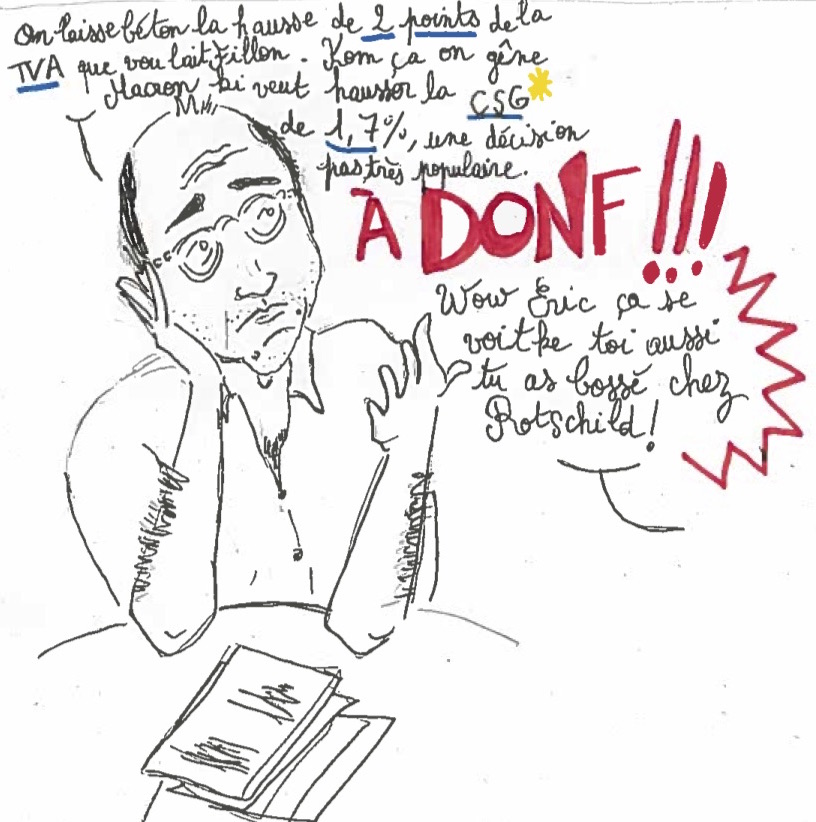 On laisse béton la hausse de 2 points de la
TVA que voulait Fillon. Kom ça on gêne
Macron ki veut hausser la CSG*
de 1,7%, une décision
pas très populaire.
À DONF !!!
Wow Éric ça se
voit ke toi aussi
tu as bossé chez
Rotschild!